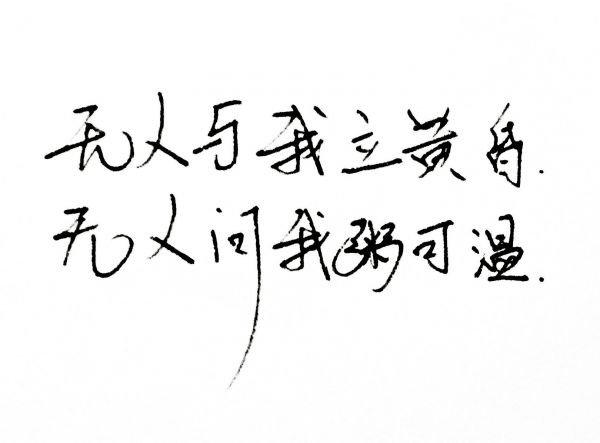 无人与我立黄昏.
无人问我粥可温.